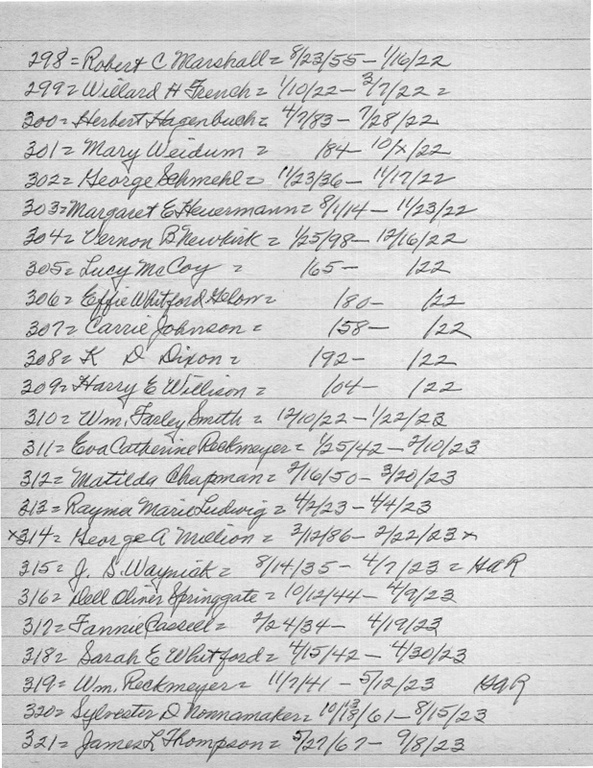 298 = Robert C Marshall = 8/23/55 - 1/16/22
299 = Willard H French = 1/10/22 - 3/7/22 =
300 = Herbert Hagenbuch = 4/7/83 - 7/28/22
301 = Mary Weidum = /84 - 10/x/22
302 = George Schmehl = 11/23/36 - 11/17/22
303 = Margaret E Heuermann = 8/1/14 - 11/23/22
304 = Vernon B Newkirk = 1/25/98 - 12/16/22
305 = Lucy McCoy = /65 - /22
306 = Effie Whitford Gelow = /80 - /22
307 = Carrie Johnson = /58 - /22
308 = K D Dixon = /92 - /22
309 = Harry E Willison = /04 - /22
310 = Wm. Farley Smith = 12/10/22 - 1/22/23
311 = Eva Catherine Reckmeyer = 1/25/42 - 2/10/23
312 = Matilda Chapman = 2/16/50 - 3/20/23
313 = Rayma Marie Ludwig = 4/2/23 - 4/4/23
x314 = George A Million = 3/12/86 - 2/22/23 x
315 = J. S. Waynick = 8/14/35 - 4/7/23 = HaR
316 = Dell Oliver Springgate = 10/12/44 - 4/9/23
317 = Fannie Cassell = 2/24/34 - 4/19/23
318 = Sarah E Whitford = 4/15/42 - 4/30/23
319 = Wm. Reckmeyer = 11/7/41 - 5/12/23 HaR
320 = Sylvester D Nonnamaker = 10/18/61 - 8/15/23
321 = James L Thompson = 5/27/67 - 9/8/23